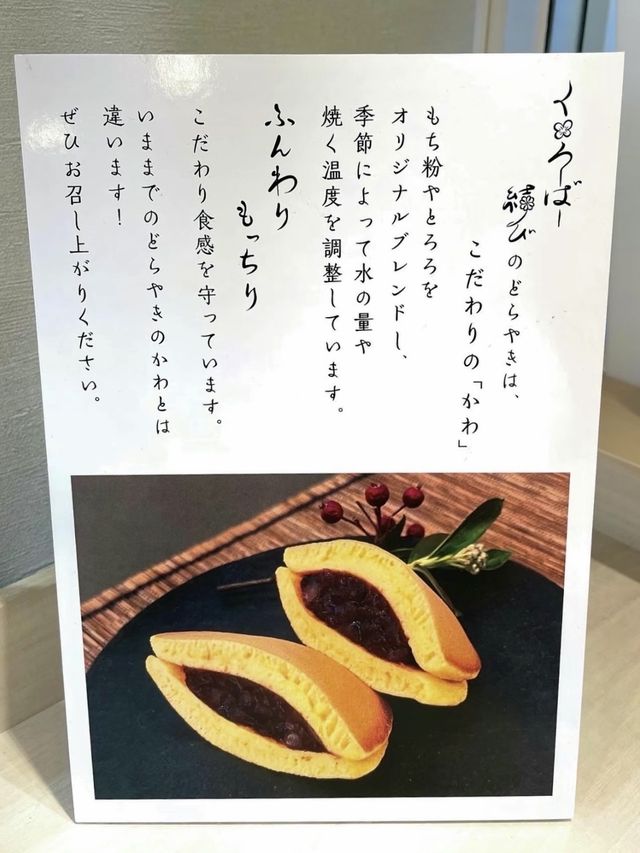 くろーばー
結びのどらやきは、
こだわりの「かわ」
もち粉やとろろを
オリジナルブレンドし、
季節によって水の量や
焼く温度を調整しています。
ふんわり
もっちり
こだわり食感を守っています。
いままでのどらやきのかわとは
違います!
ぜひお召し上がりください。